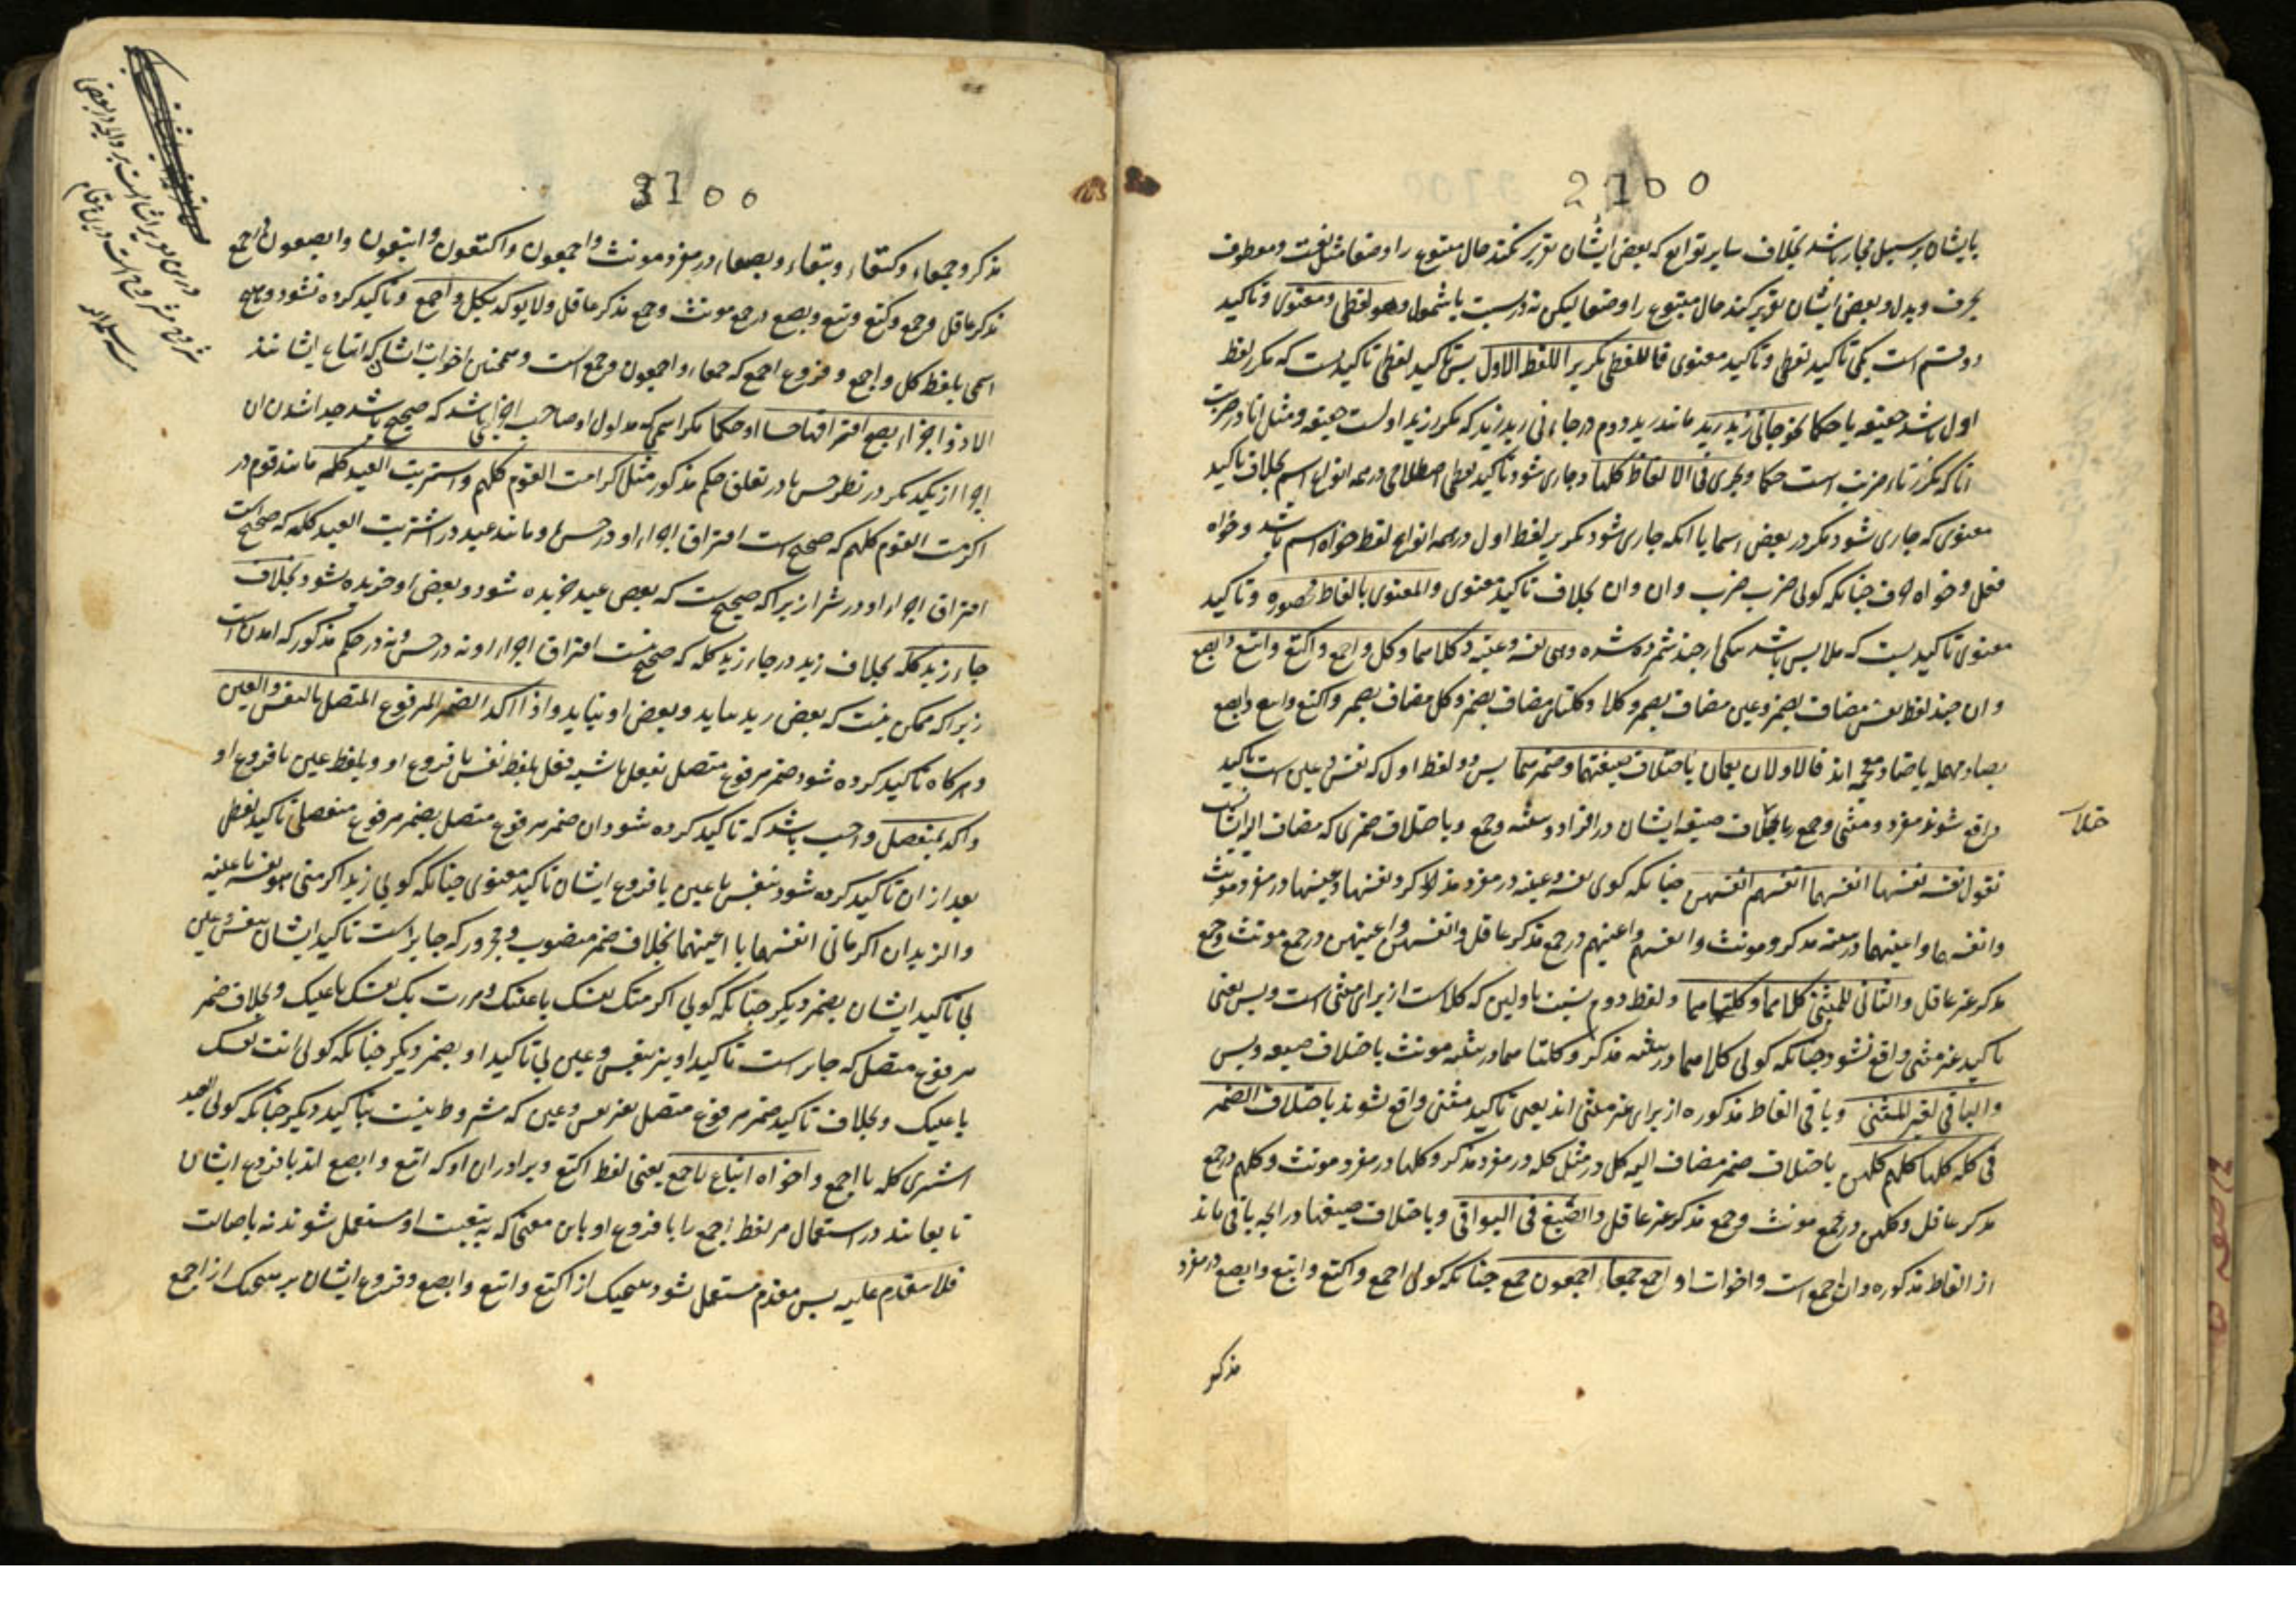 2100
بایشان بر سبیل مجاز باشد بخلاف سایر توابع که بعض ایشان تقریر نکند حال متبوع را وضعا مثل نعت و معطوف
بحرف و بدل و بعض ایشان تقریر کند حال متبوع را وضعا لیکن نه در نسبت یا شمول وهو لفظی و معنوی و تاکید
دو قسم است یکی تاکید لفظی و تاکید معنوی فاللفظی تکریر اللفظ الاول پس تاکید لفظی تاکیدیست که مکرر لفظ
اول باشد حقیقه یا حکما نحو جانی زید زید مانند زید دوم در جاءنی زید زید که مکرر زید اولست حقیقه و مثل انا در ضربت
انا که مکرر تاء ضربت است حکما ویجری فی الالفاظ کلها و جاری شود تاکید لفظی اصطلاحی در همه انواع اسم بخلاف تاکید
معنوی که جاری نشود مکر در بعض اسما یا انکه جاری شود تکریر لفظ اول در همه انواع لفظ خواه اسم باشد و خواه
فعل و خواه حرف چنانکه کولی ضرب ضرب وان وان بخلاف تاکید معنوی والمعنوی بالفاظ محصوره و تاکید
معنوی تاکیدیست که ملابس باشد بیکی از چند شمرده شده وهی نفسه وعینه وکلاهما وکل واجمع واکتع وابتع وابصع
وان چند لفظ نفس مضاف بضمیر وعین مضاف بضمیر وکلا وکلتا مضاف بضمیر وکل مضاف بضمیر واکتع وابتع وابصع
بصاد مهمله یا ضاد معجمه اند فالاولان یعمان باختلاف صیغتهما وضمیرهما پس دو لفظ اول که نفس وعین است تاکید
واقع شوند مفرد ومثنی وجمع را باختلاف صیغه ایشان در افراد وتثنیه وجمع وباختلاف ضمیری که مضاف الیه ایشان
تقول نفسه نفسها انفسهما انفسهم انفسهن چنانکه کوی نفسه وعینه در مفرد مذکر ونفسها وعینها در مفرد مونث
وانفسهما واعینهما در تثنیه مذکر ومونث وانفسهم واعینهم در جمع مذکر عاقل وانفسهن واعینهن در جمع مونث وجمع
مذکر غیر عاقل والثانی للمثنی کلاهما وکلتاهما و لفظ دوم بنسبت باولین که کلاست از برای مثنی است وبس یعنی
تاکید غیر مثنی واقع نشود چنانکه کولی کلاهما در تثنیه مذکر وکلتاهما در تثنیه مونث باختلاف صیغه وبس
والباقی لغیر المثنی وباقی الفاظ مذکوره از برای غیر مثنی اند یعنی تاکید مثنی واقع نشوند باختلاف الضمیر
فی کله کلها کلهم کلهن باختلاف ضمیر مضاف الیه کل در مثل کله در مفرد مذکر وکلها در مفرد مونث وکلهم در جمع
مذکر عاقل وکلهن در جمع مونث وجمع مذکر غیر عاقل والصیغ فی البواقی وباختلاف صیغها در انچه باقی ماند
از الفاظ مذکوره وان اجمع است واخوات او اجمع جمعاء اجمعون جمع چنانکه کولی اجمع واکتع وابتع وابصع در مفرد
مذکر
3100
مذکر وجمعاء وکتعاء وبتعاء وبصعاء در مفرد مونث واجمعون واکتعون وابتعون وابصعون در جمع
مذکر عاقل وجمع وکتع وبتع وبصع در جمع مونث وجمع مذکر غیر عاقل ولا یوکد بکل واجمع وتاکید کرده نشود وهیچ
اسمی بلفظ کل واجمع وفروع اجمع که جمعاء واجمعون وجمع است وهمچنین اخوات ایشان که اتباع ایشانند
الا ذو اجزاء یصح افتراقها حسا او حکما مکر اسمی که مدلول او صاحب اجزایی باشد که صحیح باشد جدا شدن ان
اجزا از یکدیکر در نظر حس یا در تعلق حکم مذکور مثل اکرمت القوم کلهم واشتریت العبد کله مانند قوم در
اکرمت القوم کلهم که صحیح است افتراق اجزاء او در حس ومانند عبد در اشتریت العبد کله که صحیح است
افتراق اجزاء او در شرا زیرا که صحیح است که بعض عبد خریده شود وبعض او خریده نشود بخلاف
جاء زید کله بخلاف زید در جاء زید کله که صحیح نیست افتراق اجزاء او نه در حس ونه در حکم مذکور که امدن است
زیرا که ممکن نیست که بعض زید بیاید وبعض او نیاید واذا اکد الضمیر المرفوع المتصل بالنفس والعین
وهرکاه تاکید کرده شود ضمیر مرفوع متصل بفعل یا شبه فعل بلفظ نفس با فروع او وبلفظ عین با فروع او
واکد بمنفصل واجب باشد که تاکید کرده شود ان ضمیر مرفوع متصل بضمیر مرفوع منفصلی تاکید لفظی
بعد از ان تاکید کرده شود بنفس یا عین یا فروع ایشان تاکید معنوی چنانکه کولی زید اکرمنی هو نفسه یا عینه
والزیدان اکرمانی انفسهما یا اعینهما بخلاف ضمیر منصوب ومجرور که جایز است تاکید ایشان بنفس وعین
بی تاکید ایشان بضمیر دیکر چنانکه کولی اکرمتک نفسک یا عینک ومررت بک نفسک یا عینک وبخلاف ضمیر
مرفوع منفصل که جایز است تاکید او بنفس وعین بی تاکید او بضمیر دیکر چنانکه کولی انت نفسک
یا عینک وبخلاف تاکید ضمیر مرفوع متصل بغیر نفس وعین که مشروط نیست بتاکید دیکر چنانکه کولی العبد
اشتری کله یا اجمع واخواه اتباع لاجمع یعنی لفظ اکتع وبرادران او که ابتع وابصع اند با فروع ایشان
تابعانند در استعمال مر لفظ اجمع را با فروع او باین معنی که به تبعیت او مستعمل شوند نه باصالت
فلا یتقدم علیه پس مقدم مستعمل نشود هیچیک از اکتع وابتع وابصع وفروع ایشان بر هیچیک از اجمع